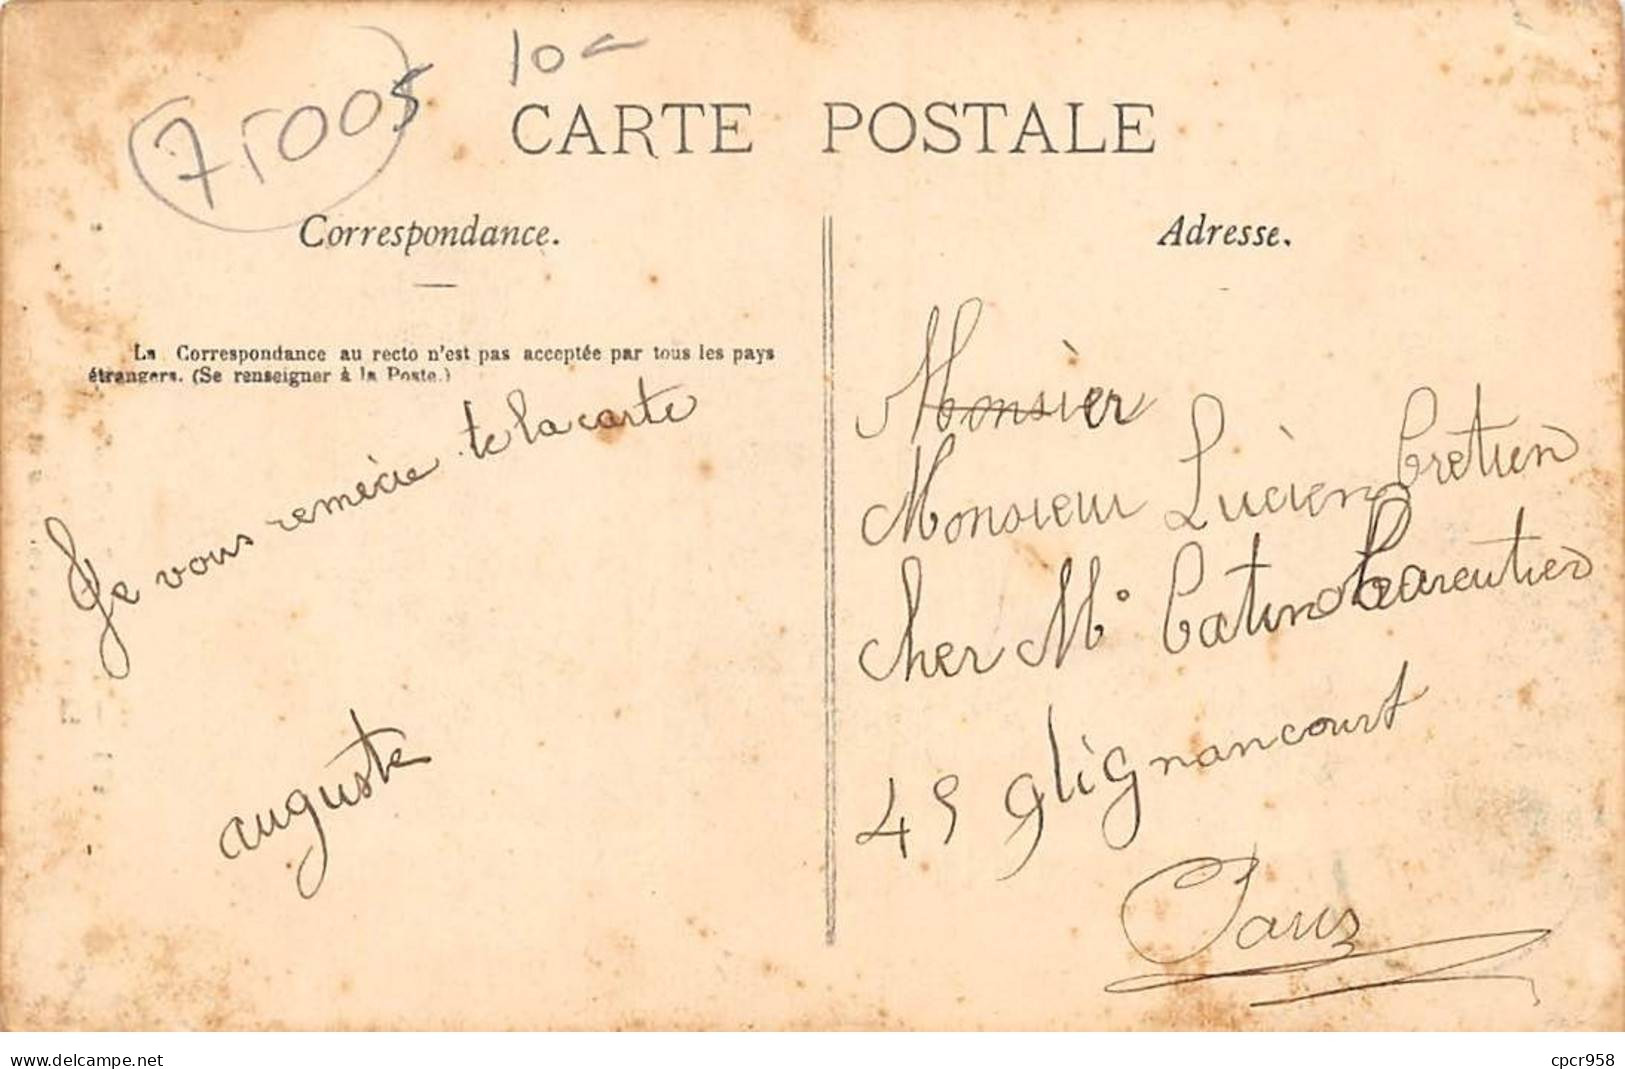 75005
10 €
CARTE POSTALE
Correspondance.
La Correspondance au recto n'est pas acceptée par tous les pays
étrangers. (Se renseigner à la Poste.)
Je vous remècie te la carte
auguste
Adresse.
Monsièr
Monsieur Lucien Cretien
cher Mr Catino
45 gligNancourt
Paris
www.delcampe.net
cpcr958